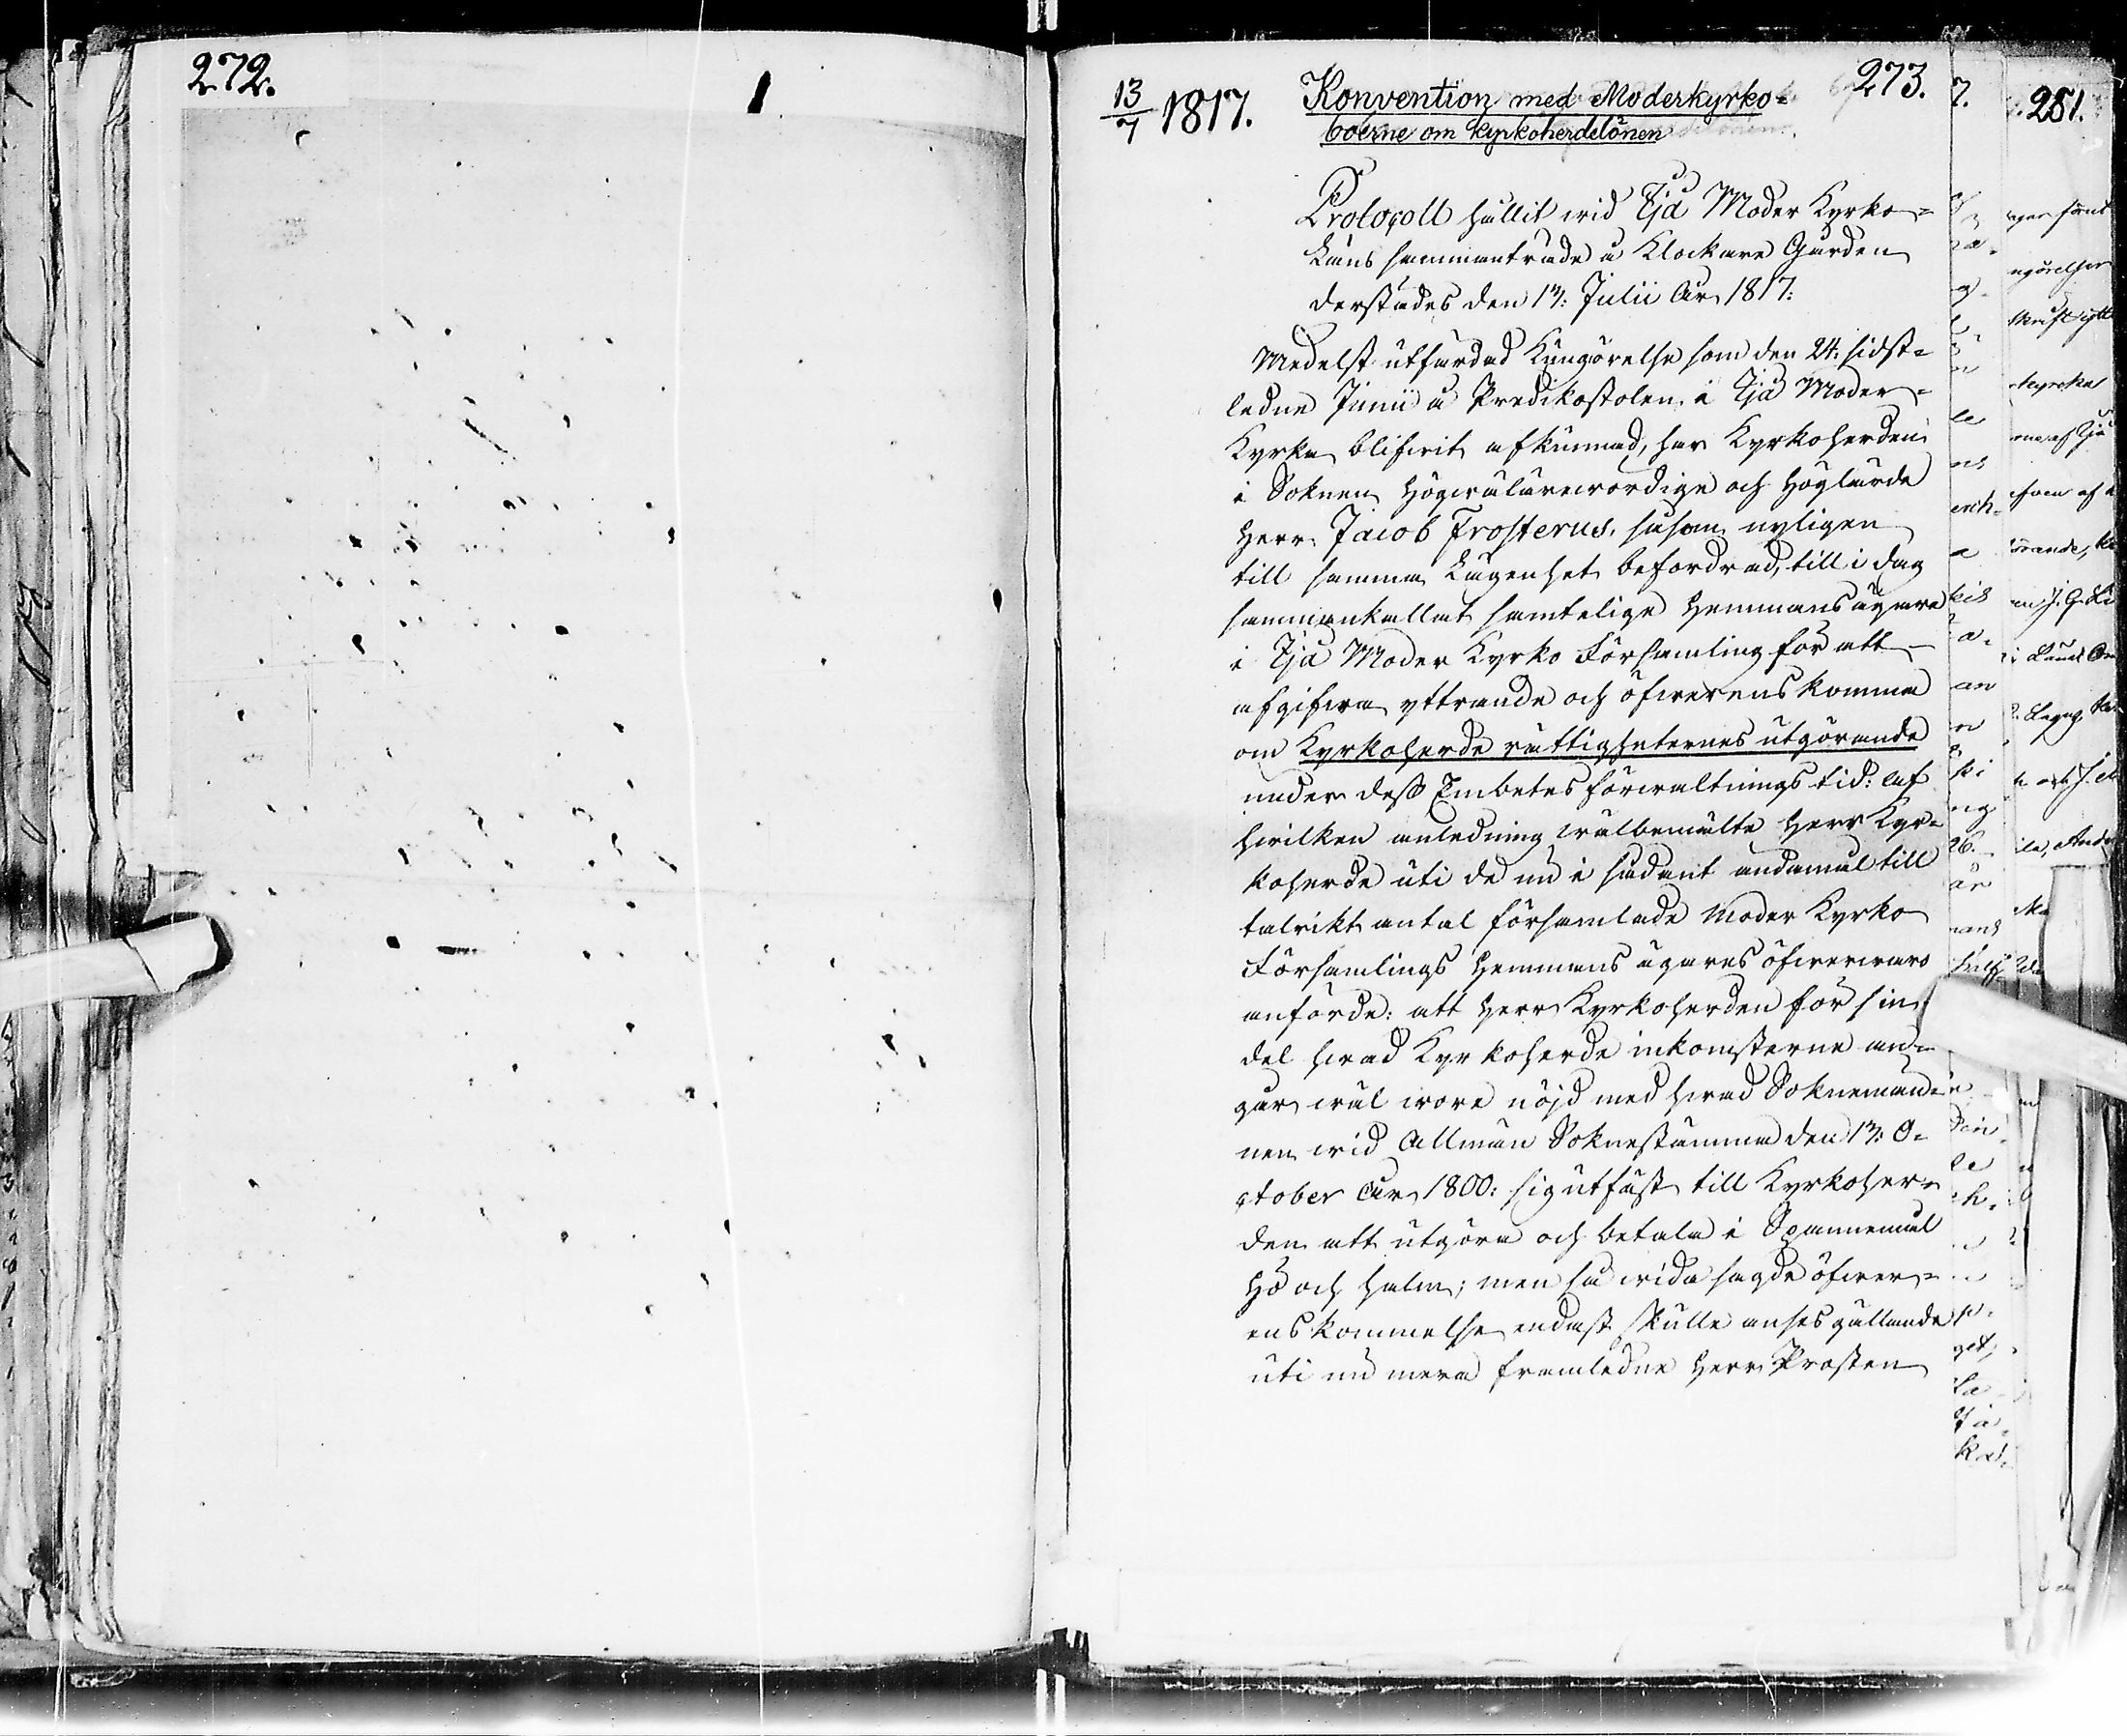 272.
273.
13/7 1817.
Konvention med Moderkyrko=
boerne om kyrkoherdelönen
Protocoll hållit wid Ijå Moder Kyrko=
Låns sammanträde å Klockare Gården
derstädes den 13: Julii År 1817:
Medelst utfärdad Kungörelse som den 24. sidst=
ledne Junii å Predikostolen i Ijå Moder=
Kyrka blifwit afkunnad, har Kyrkoherden
i Soknen Högwälärewördige och Höglärde
Herr Jacob Frosterus, såsom nyligen
till samma Lägenhet befordrad, till i dag
sammankallat samtelige Hemmans ägare
i Ijå Moder Kyrko Församling för att
afgifwa yttrande och öfwerenskomma
om Kyrkoherde rättigheternes utgörande
under dess Embetes förwaltnings tid: Af
hwilken anledning wälbemälte Herr Kyr=
koherde uti de nu i sådant ändamål till
talrikt antal församlade Moder Kyrko
Församlings Hemmans ägares öfwerwaro
anförde: att Herr Kyrkoherden för sin
del hwad Kyrkoherde inkomsterne an=
går wäl wore nöjd med hwad Soknemän=
nen wid Allmän Soknestämma den 13: O=
ctober År 1800: sig utfäst till Kyrkoher=
den att utgöra och betala i Spannemål
Hö och halm; men så wida sagde öfwer=
enskommelse endast skulle anses gällande
uti nu mera framledne Herr Prosten
7.
281.